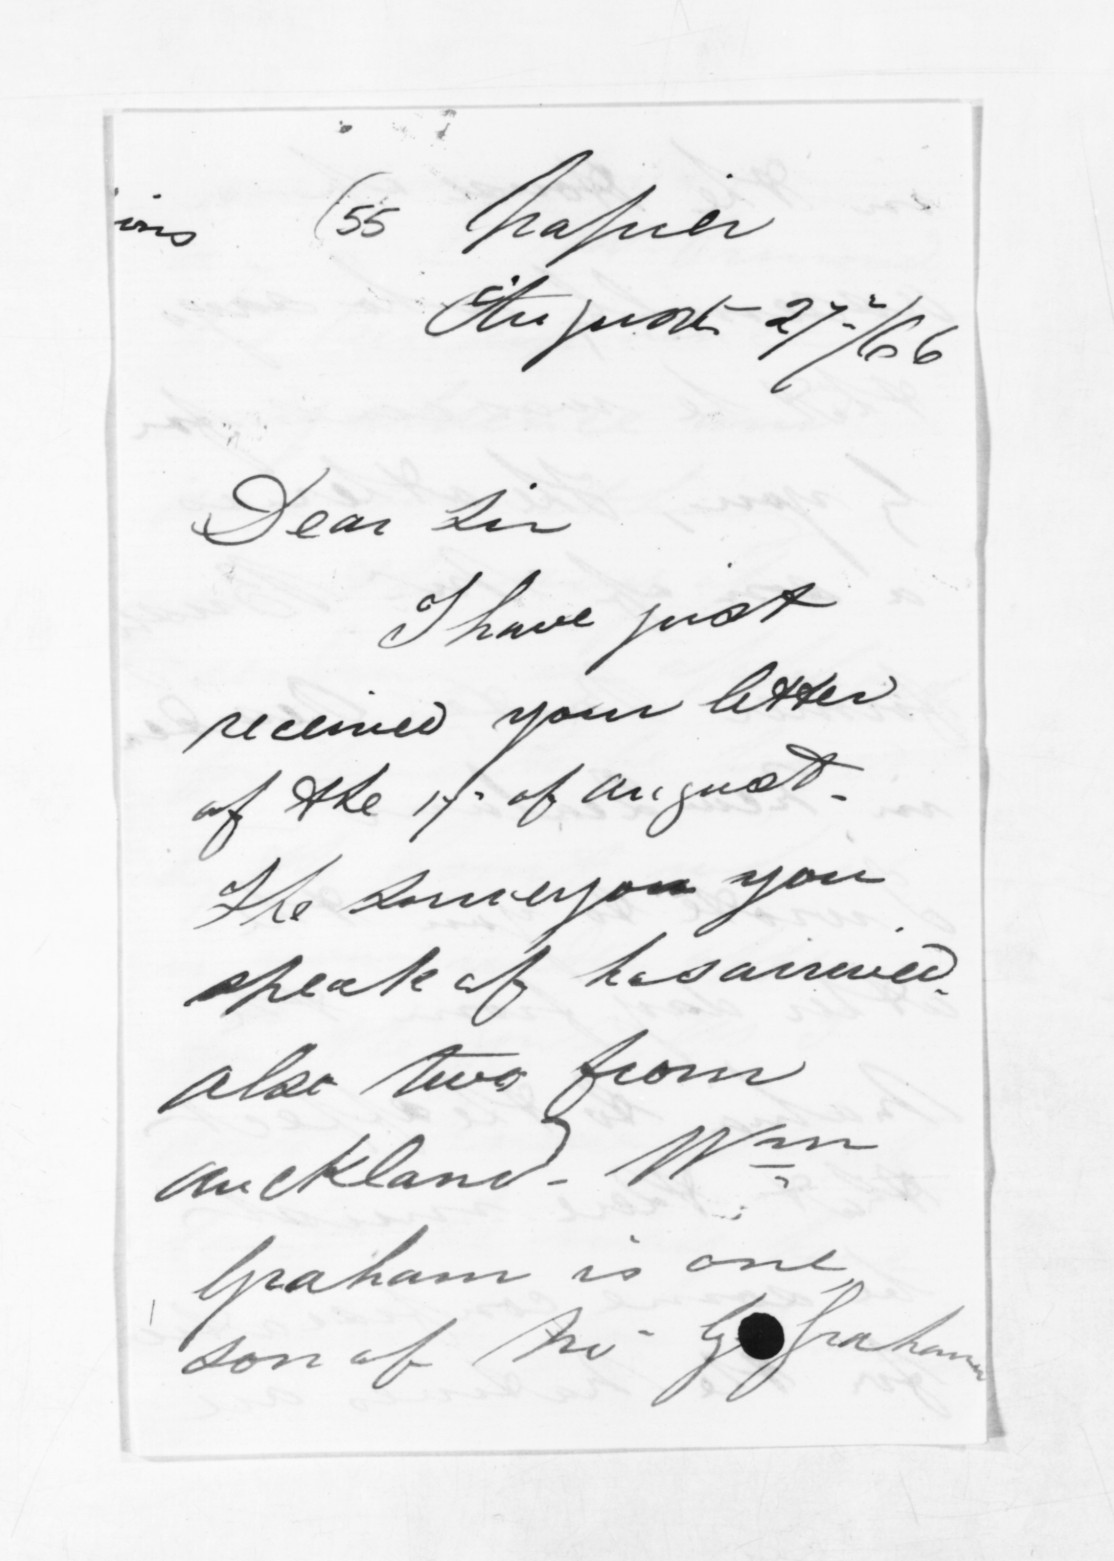 ions (55 Napier
August 27/66
Dear Sir
I have just
received your letter
of the 17 of August.
The surveyor you
speak of has arrived.
also two from
Auckland. Wm
Graham is one
son of Mr G Graham